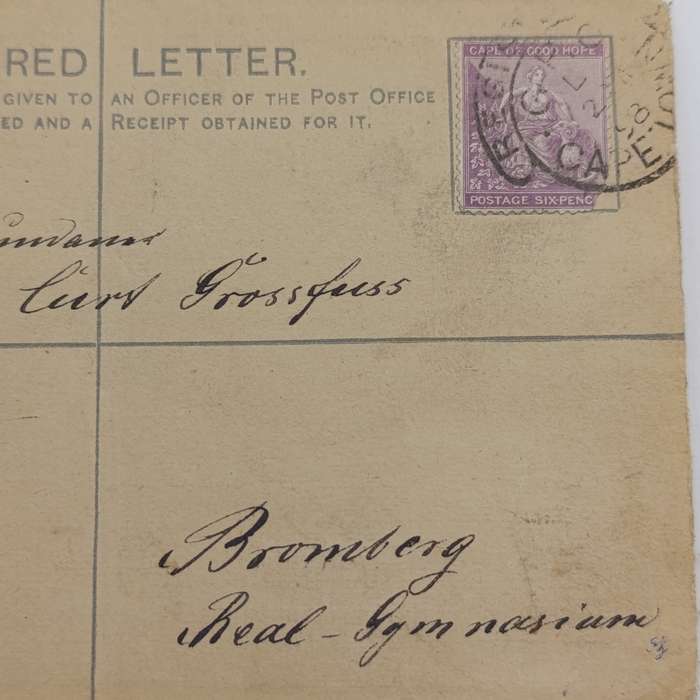 RED LETTER.
GIVEN TO AN OFFICER OF THE POST OFFICE
ED AND A RECEIPT OBTAINED FOR IT.
CAPE OF GOOD HOPE
POSTAGE SIX-PENC
Curt Grossfuss
Bromberg
Real-Gymnasium